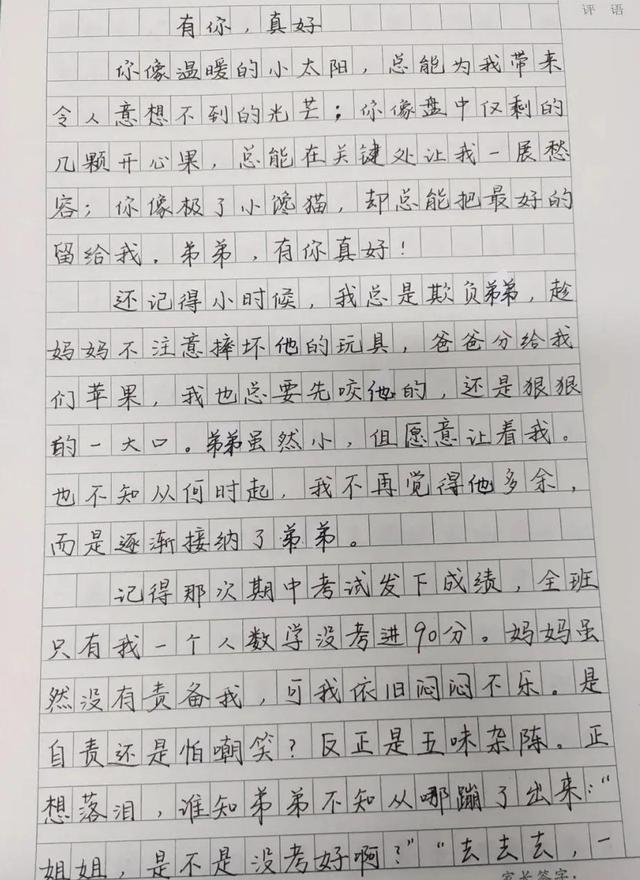 评语
有你，真好
你像温暖的小太阳，总能为我带来
令人意想不到的光芒；你像盘中仅剩的
几颗开心果，总能在关键处让我一展愁
容；你像极了小馋猫，却总能把最好的
留给我。弟弟，有你真好！
还记得小时候，我总是欺负弟弟，趁
妈妈不注意摔坏他的玩具，爸爸分给我
们苹果，我也总要先咬他的，还是狠狠
的一大口。弟弟虽然小，但愿意让着我。
也不知从何时起，我不再觉得他多余，
而是逐渐接纳了弟弟。
记得那次期中考试发下成绩，全班
只有我一个人数学没考进90分。妈妈虽
然没有责备我，可我依旧闷闷不乐。是
自责还是怕嘲笑？反正是五味杂陈。正
想落泪，谁知弟弟不知从哪蹦了出来：“
姐姐，是不是没考好啊？”“去去去，一
家长签字：